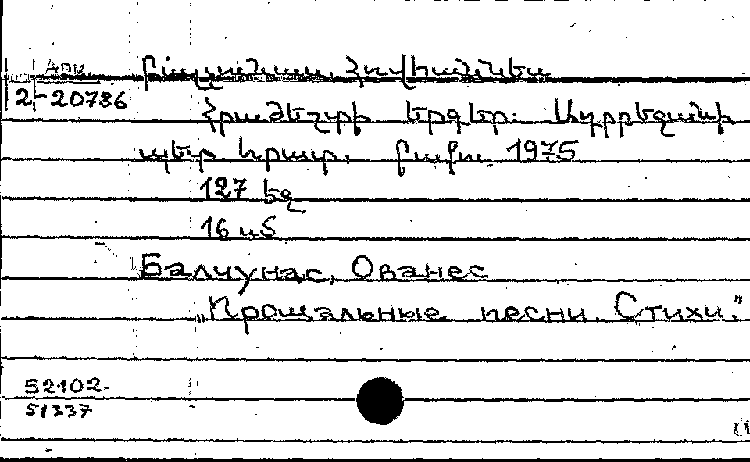 Арм.
Բալչունաս, Հովհաննես
2-20786
Հրաժեշտի երգեր. Ադրբեջանի
պետ հրատ. Բաքու 1975
127 էջ
16 սմ
Балчунас, Ованес
„Прощальные песни. Стихи."
52102-
51337